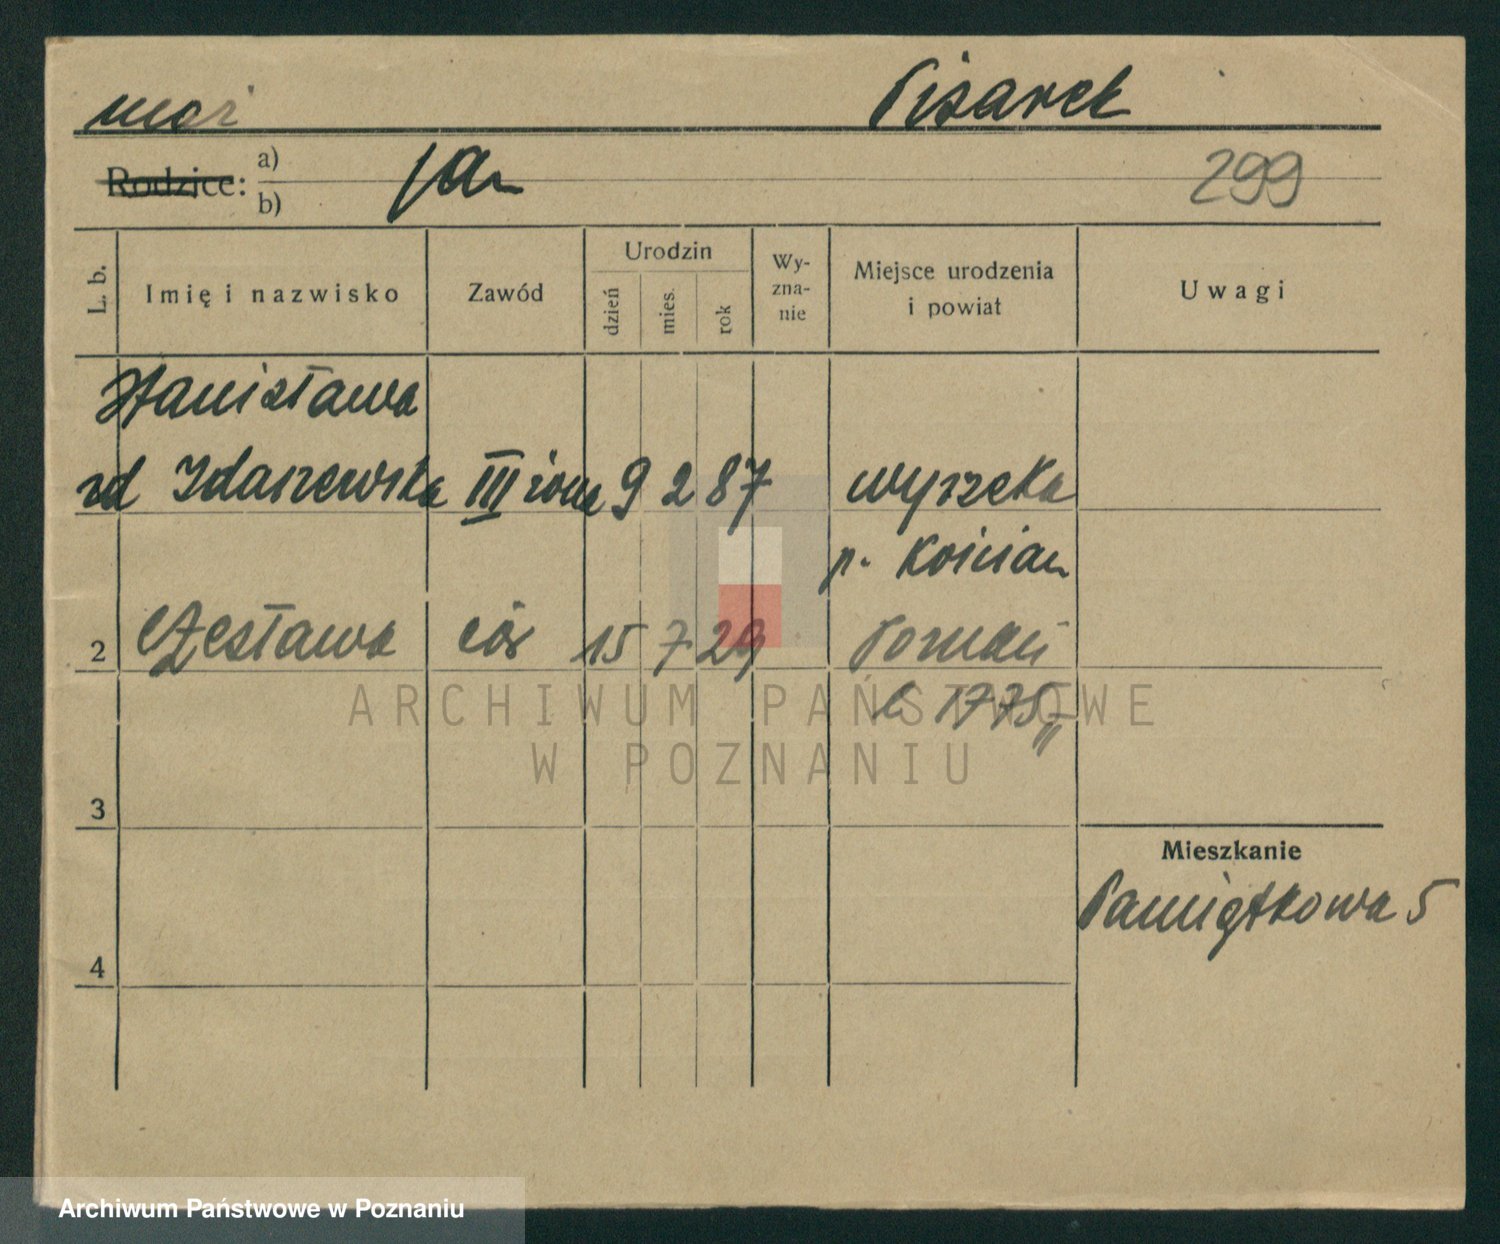 mąż Pisarek
Rodzice: a)
b) Jan 299
L. b. Imię i nazwisko Zawód Urodzin dzień mies. rok Wy-zna-nie Miejsce urodzenia i powiat Uwagi
Stanisława
zd Idaszewska III żona 9 2 87 Wyrzeka
p. Kościan
2 Czesława cór 15 7 29 Poznań
1775
3
Mieszkanie
Pamiątkowa 5
4
ARCHIWUM PAŃSTWOWE
W POZNANIU
Archiwum Państwowe w Poznaniu